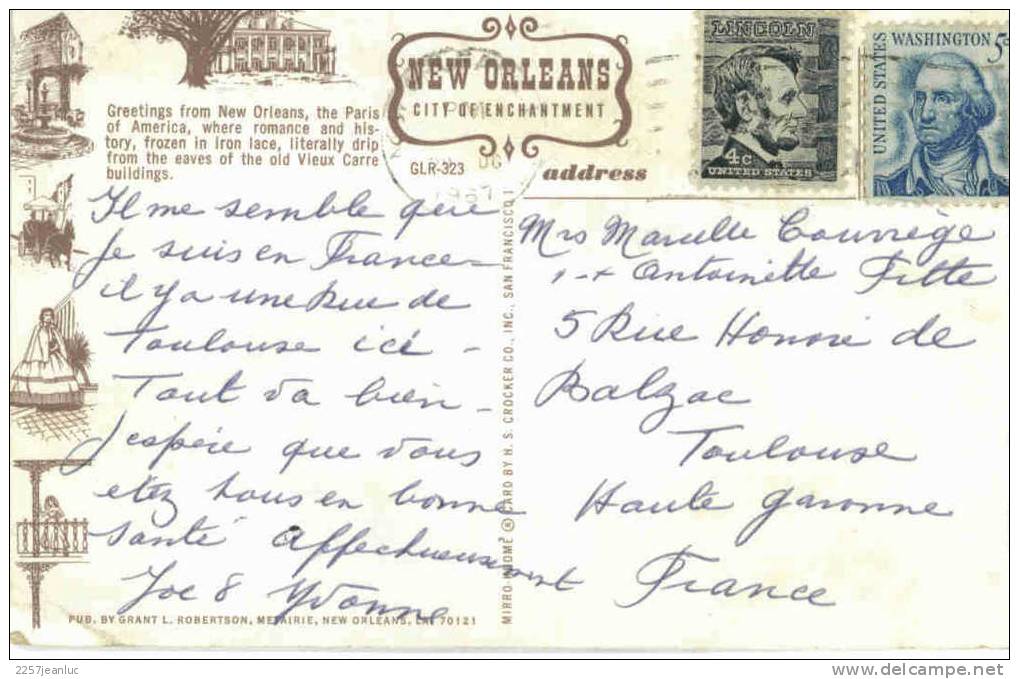 NEW ORLEANS
CITY OF ENCHANTMENT
Greetings from New Orleans, the Paris
of America, where romance and his-
tory, frozen in Iron lace, literally drip
from the eaves of the old Vieux Carre
buildings.
GLR-323
1967
address
LINCOLN
4c
UNITED STATES
WASHINGTON 5c
UNITED STATES
Il me semble que
Je suis en France -
il ya une Rue de
Toulouse ici -
Tout va bien -
J'espère que vous
etez tous en bonne
santé affectueusement
Joe & Yvonne
Mrs Marcelle Courrège
+ Antoinette Fitte
5 Rue Honoré de
Balzac
Toulouse
Haute garonne
France
MIRRO-KROME ® CARD BY H. S. CROCKER CO., INC., SAN FRANCISCO, 1
PUB. BY GRANT L. ROBERTSON, METAIRIE, NEW ORLEANS, LA. 70121
2257jeanluc
www.delcampe.net